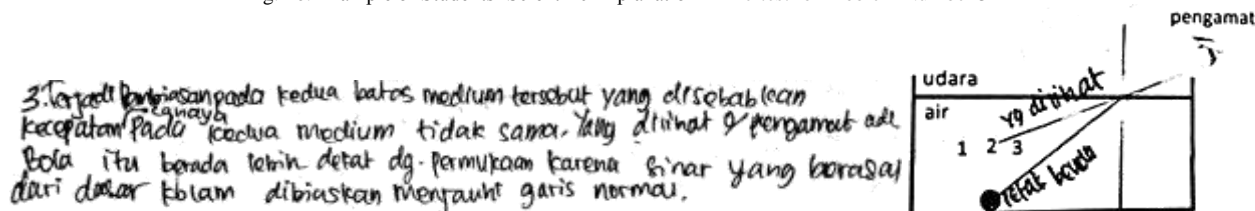 3. Terjadi Pembiasan pada kedua batas medium tersebut yang disebabkan
cahaya
kecepatan pada kedua medium tidak sama. Yang dilihat pengamat
Bola itu berada lebih dekat dg. permukaan karena sinar yang berasal
dari dasar kolam dibiaskan menjauhi garis normal.
pengamat
udara
air
yg dilihat
1 2 3